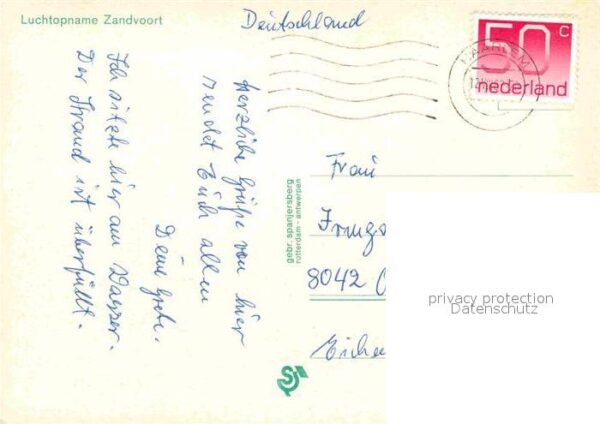 Luchtopname Zandvoort
Deutschland
50 c
nederland
HAARLEM
Herzliche Grüße von hier
sendet Euch allen
Deine Grete.
Ich sitze hier am Wasser.
Der Strand ist überfüllt.
gebr. spanjersberg
rotterdam - antwerpen
Frau
Irmg
8042
Eiche
privacy protection
Datenschutz